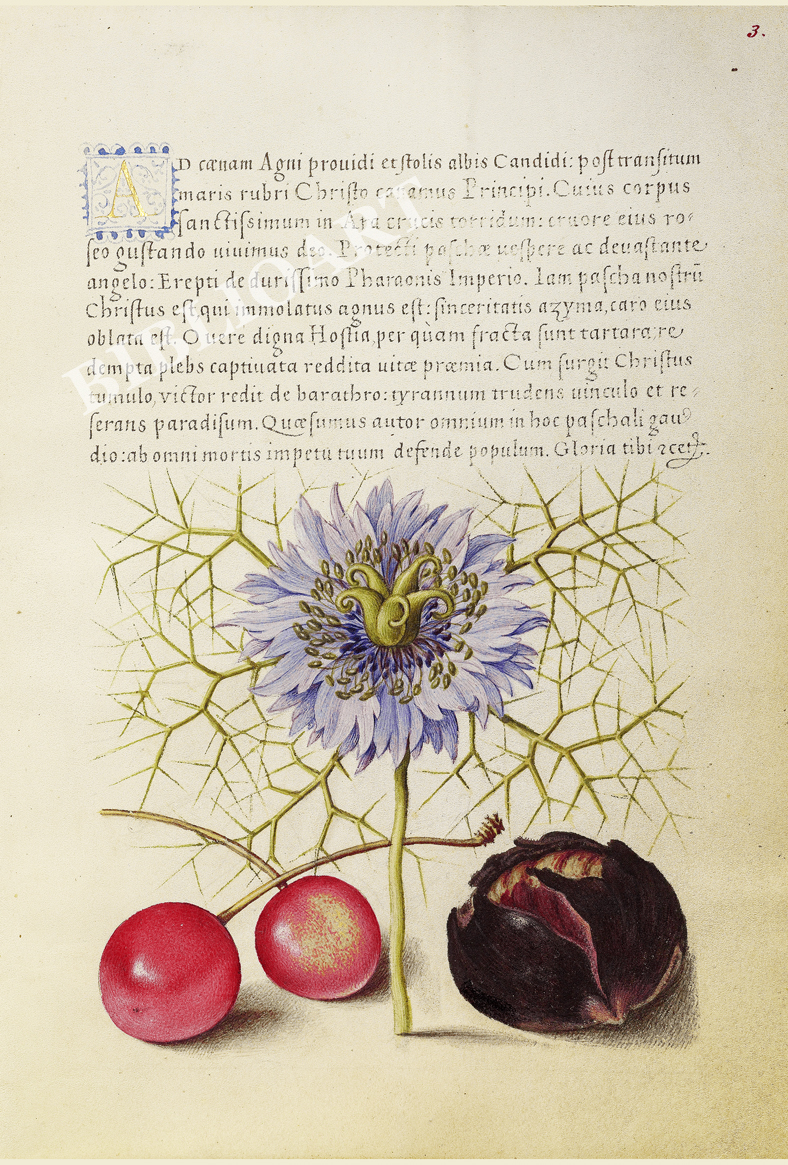 3.
AD cænam Agni prouidi et ſtolis albis Candidi: poſt tranſitum
maris rubri Chriſto canamus Principi. Cuius corpus
ſanctiſsimum in Ara crucis torridum: cruore eius ro⸗
ſeo guſtando uiuimus deo. Protecti paſchæ ueſpere ac deuaſtante
angelo: Erepti de duriſſimo Pharaonis Imperio. Iam paſcha noſtrũ
Chriſtus eſt, qui immolatus agnus eſt: ſinceritatis azyma, caro eius
oblata eſt. O uere digna Hoſtia, per quàm fracta ſunt tartara, re
dempta plebs captiuata reddita uitæ præmia. Cum ſurgit Chriſtus
tumulo, victor redit de barathro: tyrannum trudens uinculo et re⸗
ſerans paradiſum. Quæſumus autor omnium in hoc paſchali gau⸗
dio: ab omni mortis impetu tuum defende populum. Gloria tibi ⁊cet.
BIBLIOART